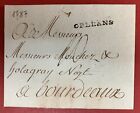 1787
ORLEANS
A Messieurs
Messieurs Mouchez &
Holagray Negt
a Bourdeaux